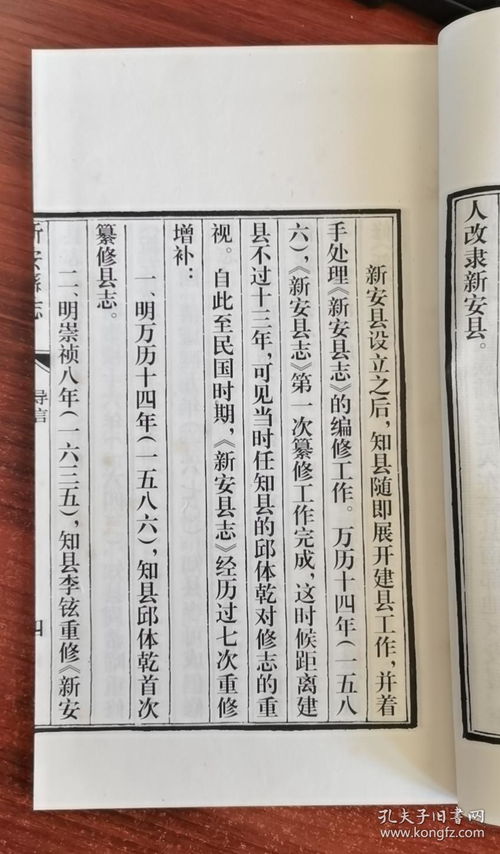 人改隶新安县。
新安县设立之后，知县随即展开建县工作，并着
手处理《新安县志》的编修工作。万历十四年（一五八
六），《新安县志》第一次纂修工作完成，这时候距离建
县不过十三年，可见当时任知县的邱体乾对修志的重
视。自此至民国时期，《新安县志》经历过七次重修
增补：
一、明万历十四年（一五八六），知县邱体乾首次
纂修县志。
二、明崇祯八年（一六三五），知县李铉重修《新安
新安县志
导言
四
孔夫子旧书网
www.kongfz.com